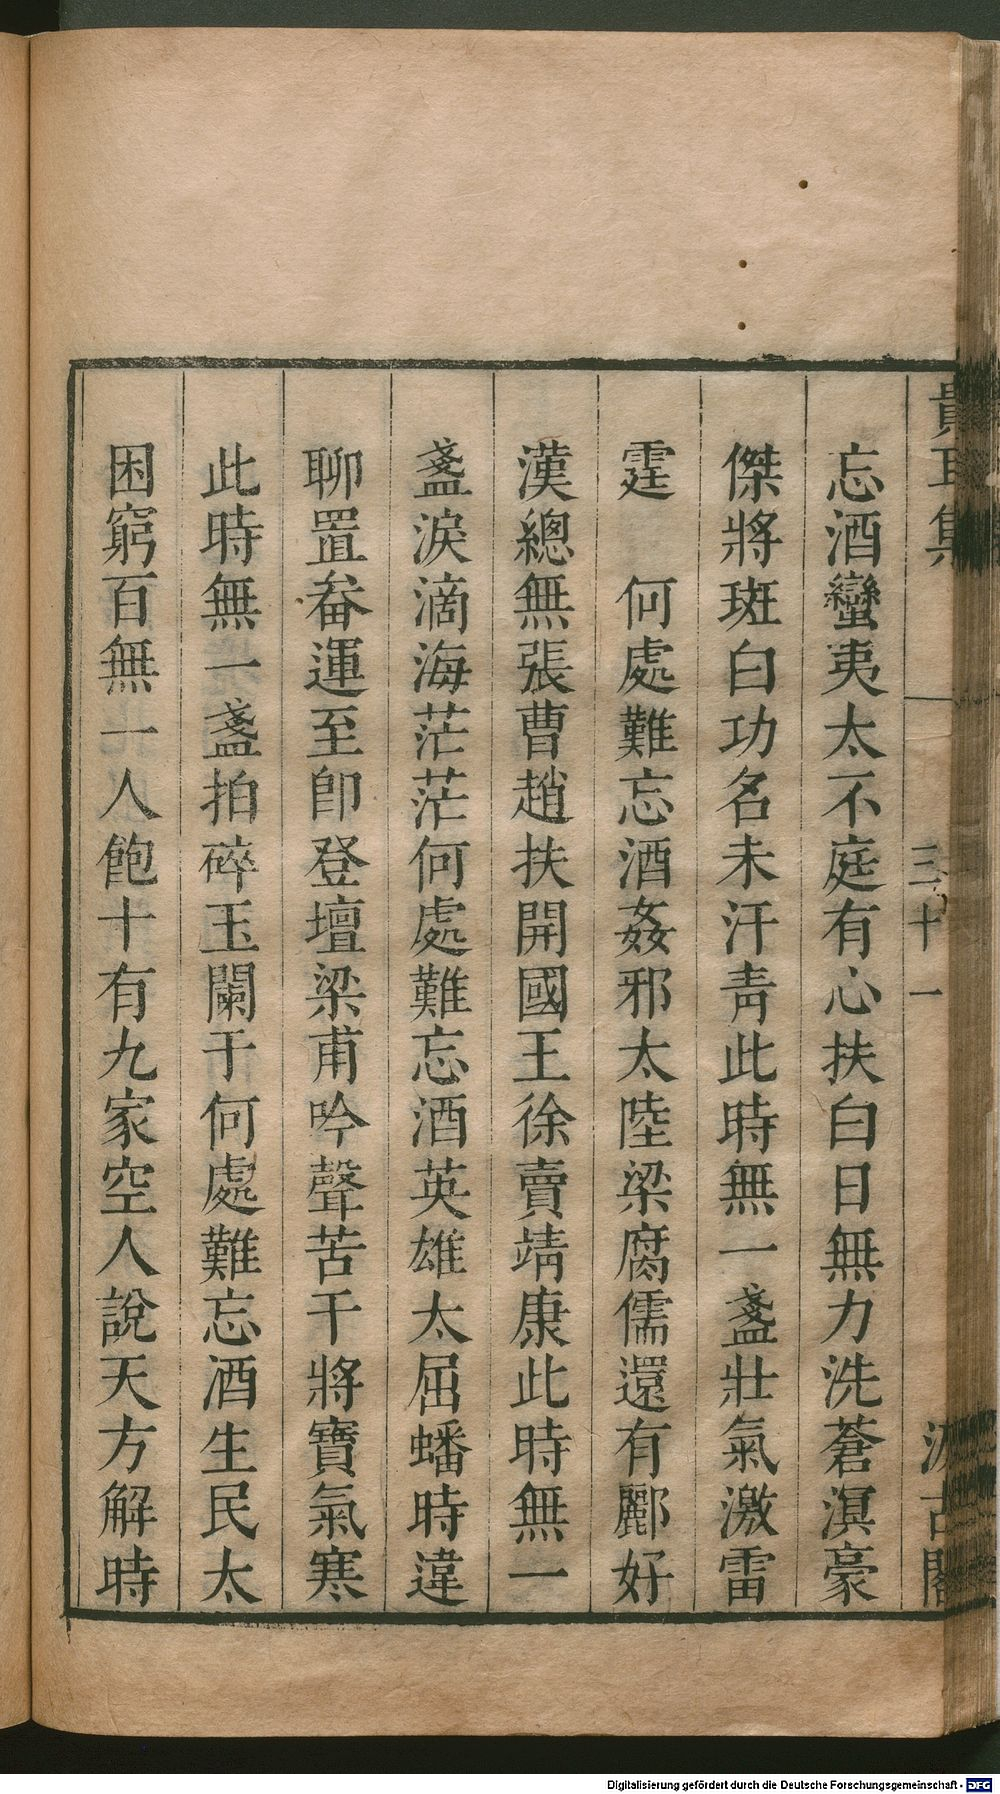 貴耳集　三十一　汲古閣
忘酒蠻夷太不庭有心扶白日無力洗蒼溟豪
傑將斑白功名未汗青此時無一盞壯氣激雷
霆　何處難忘酒姦邪太陸梁腐儒還有酈好
漢總無張曹趙扶開國王徐賣靖康此時無一
盞淚滴海茫茫何處難忘酒英雄太屈蟠時違
聊置畚運至卽登壇梁甫吟聲苦干將寶氣寒
此時無一盞拍碎玉闌干何處難忘酒生民太
困窮百無一人飽十有九家空人說天方解時
Digitalisierung gefördert durch die Deutsche Forschungsgemeinschaft - DFG